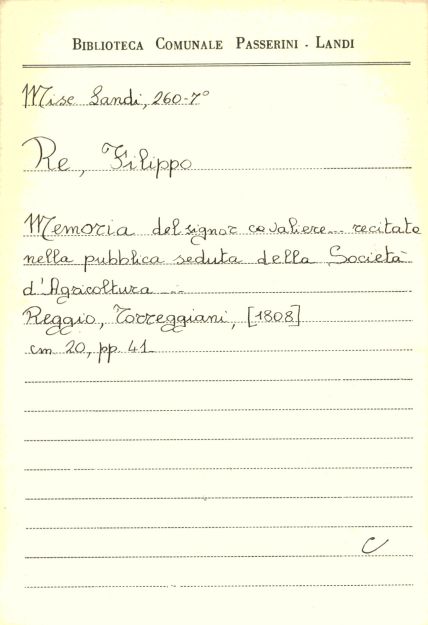 BIBLIOTECA COMUNALE PASSERINI - LANDI
Misc Landi, 260-7°
Re, Filippo
Memoria del signor cavaliere... recitate
nella pubblica seduta della Società
d'Agricoltura ...
Reggio, Torreggiani, [1808]
cm 20, pp. 41
C